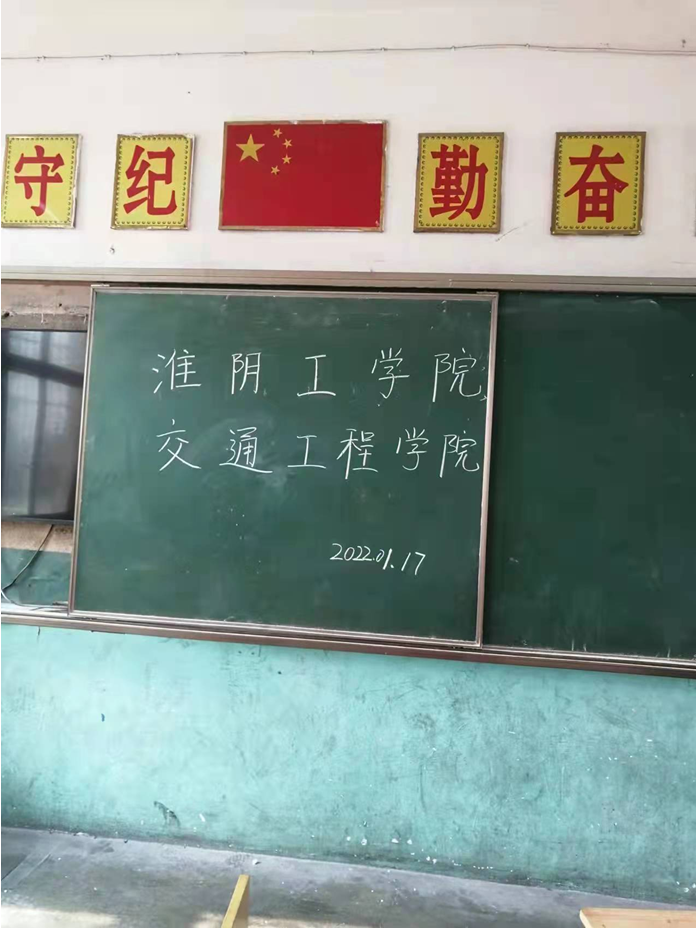 守纪 勤奋
淮阴工学院
交通工程学院
2022.01.17